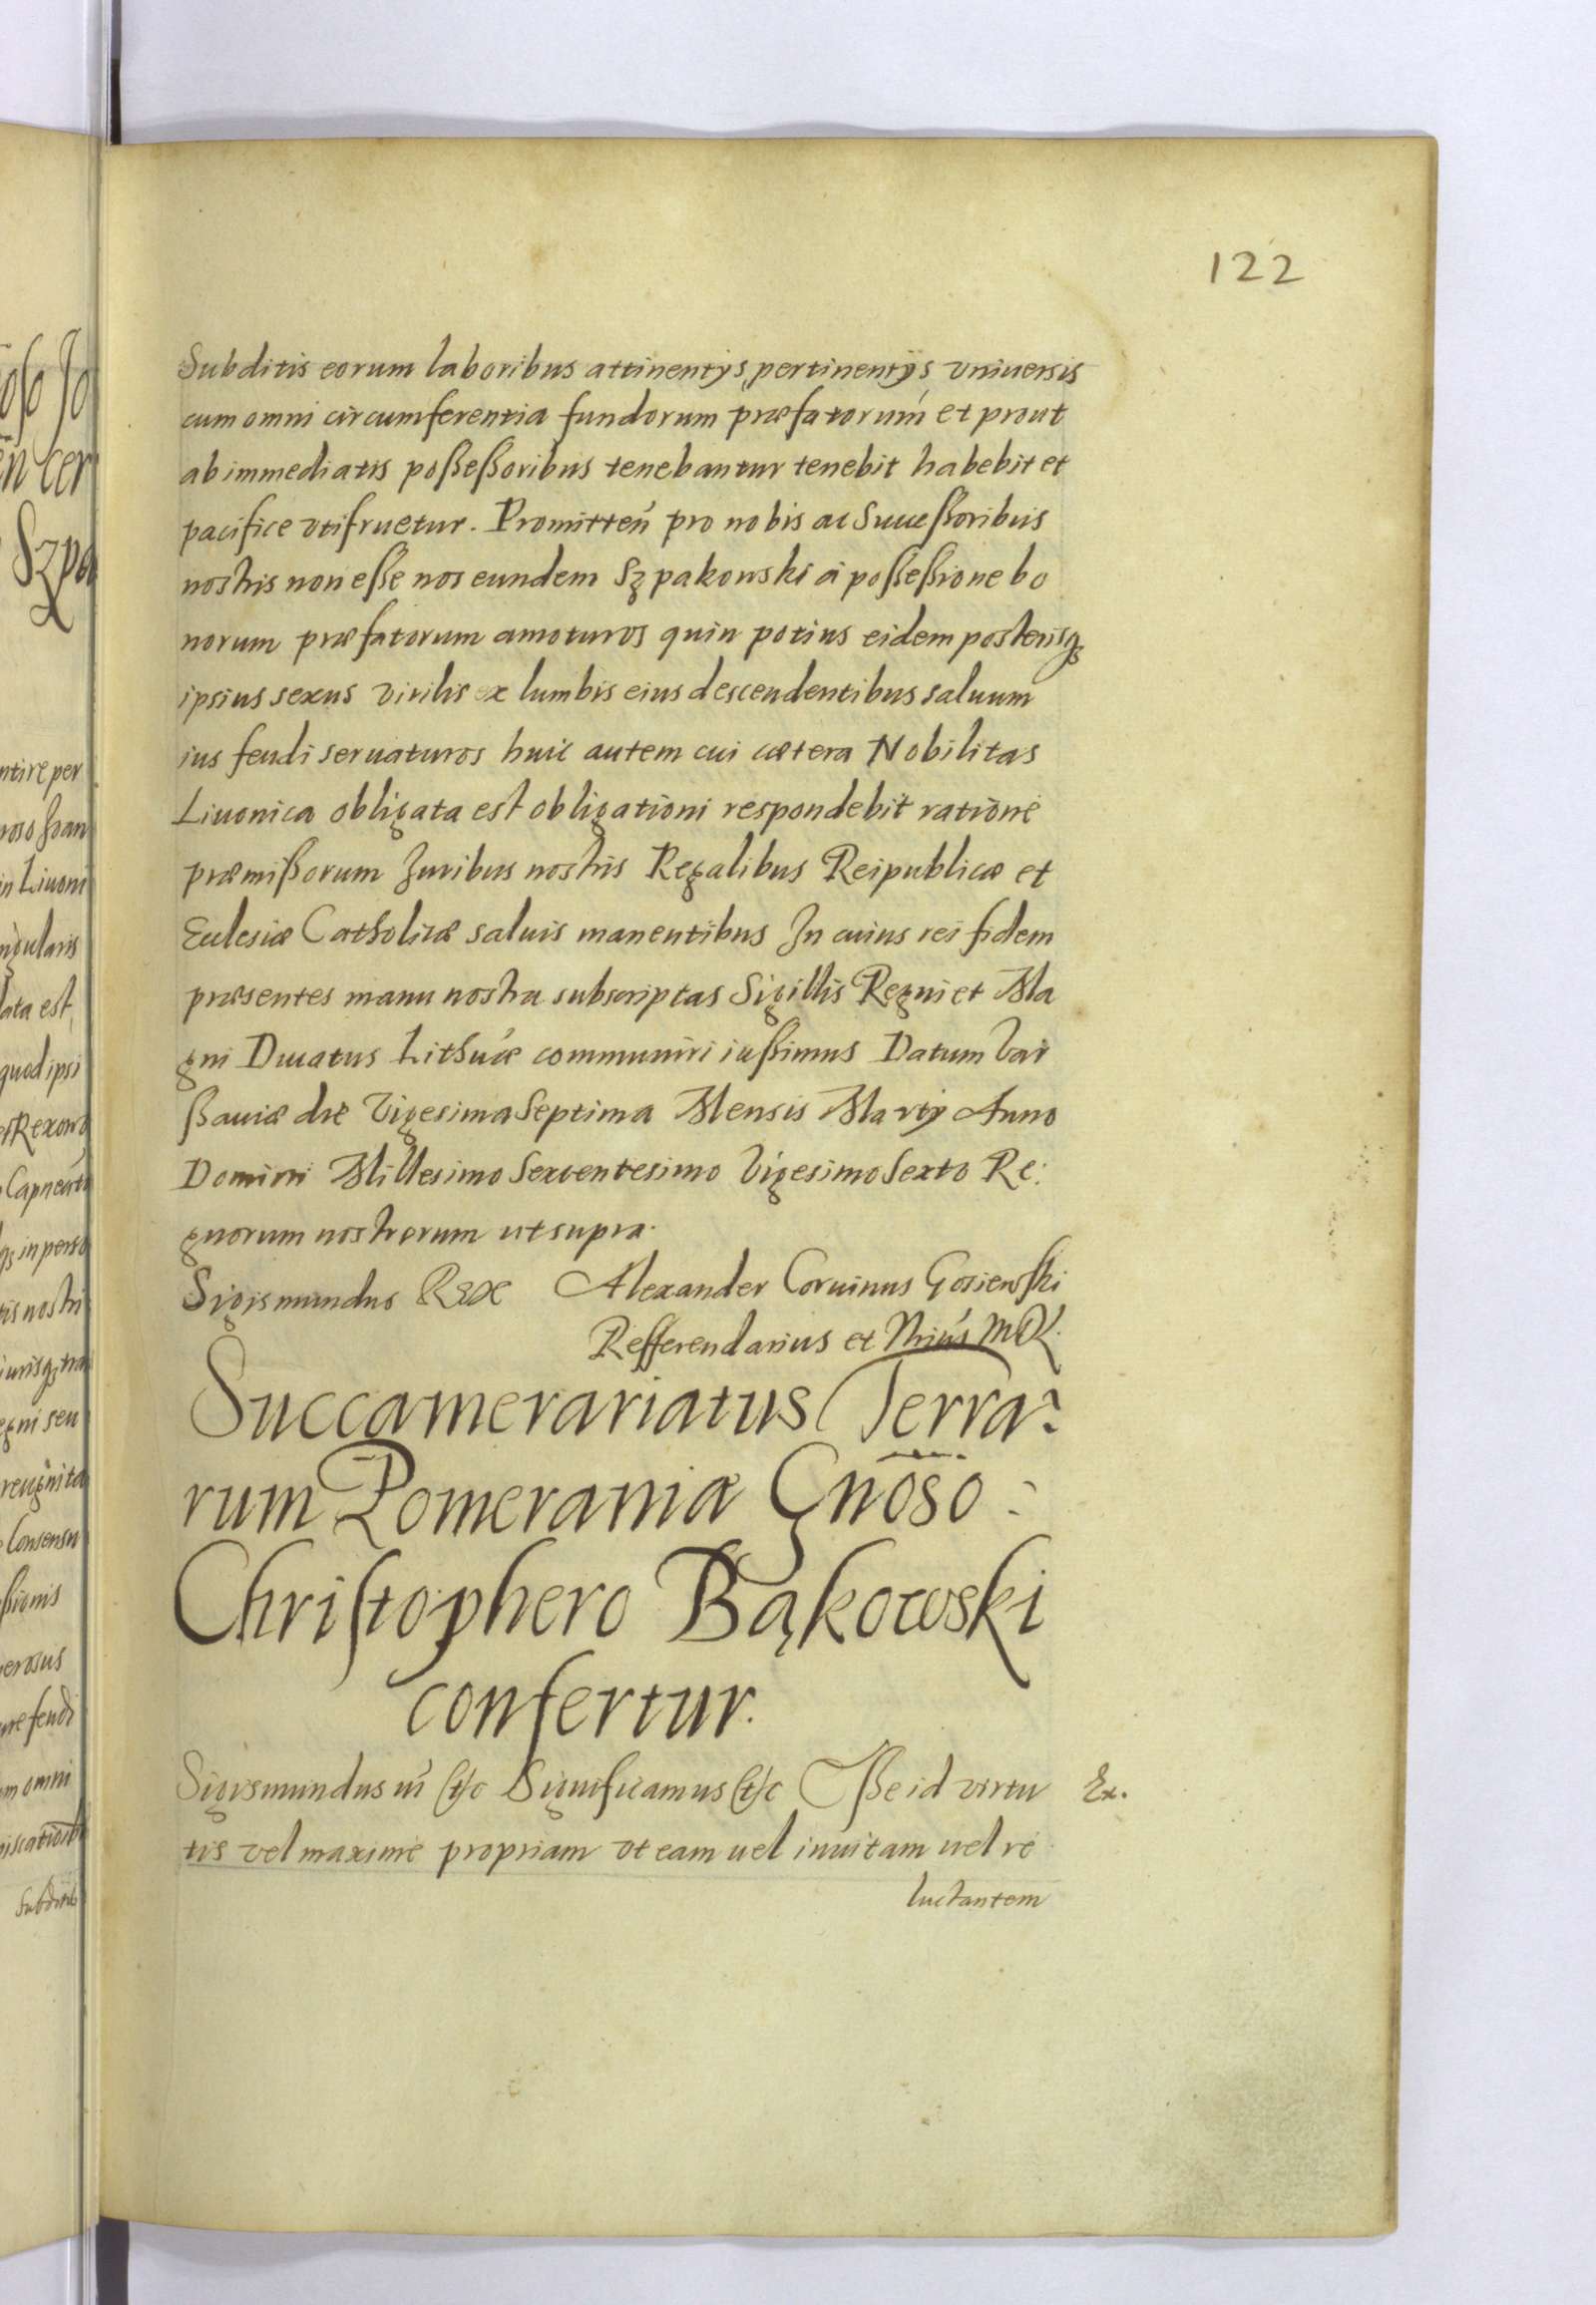 122
Subditis eorum laboribus attinentijs, pertinentijs vniuersis
cum omni circumferentia fundorum præfatorum et prout
ab immediatis poßeßoribus tenebantur tenebit habebit et
pacifice vtifruetur. Promitteñ pro nobis ac Succeßoribus
nostris non eße nos eundem Szpakowski à poßeßione bo
norum præfatorum amoturos quin potius eidem posterisq;
ipsius sexus virilis ex lumbis eius descendentibus saluum
ius feudi seruaturos huic autem cui cætera Nobilitas
Liuonica obligata est obligationi respondebit ratione
præmißorum Juribus nostris Regalibus Reipublicæ et
Ecclesiæ Catholicæ saluis manentibus In cuius rei fidem
præsentes manu nostra subscriptas Sigillis Regni et Ma
gni Ducatus Lithuæ communiri iußimus Datum Var
ßauiæ die Vigesima Septima Mensis Martij Anno
Domini Millesimo Sexcentesimo Vigesimo Sexto Re:
gnorum nostrorum ut supra.
Sigismundus Rex Alexander Coruinus Gosiewski
Refferendarius et Nriús MDL.
Succamerariatus Terra:
rum Pomeraniæ Gnõso:
Christophero Bąkowski
confertur.
Sigismundus iii &c Significamus &c Eße id virtu Ex.
tis vel maxime propriam vt eam uel inuitam uel re
luctantem
ntire per
in Liuoni
ngularis
lata est,
quod ipsi
in perso
tis nostri
egni seu
Consensu
ßionis
erosus
ure feudi
um omni
Subditis